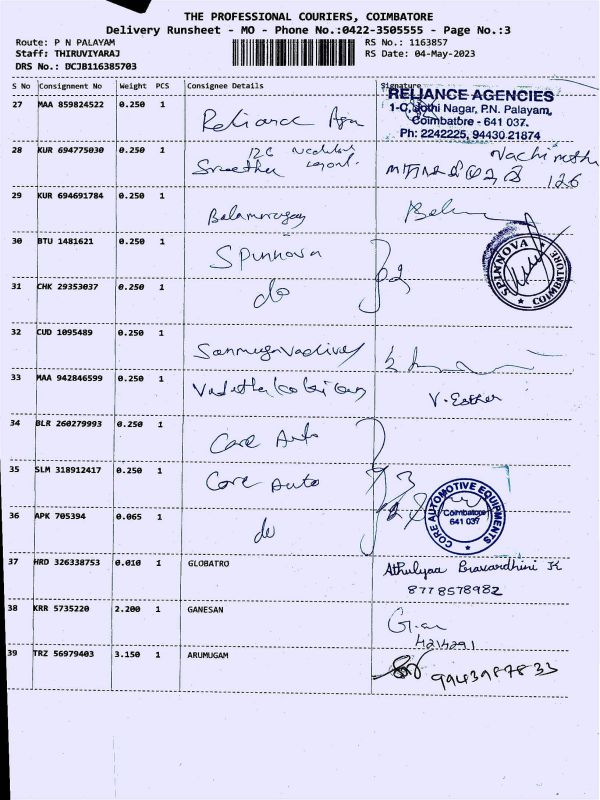 THE PROFESSIONAL COURIERS, COIMBATORE
Delivery Runsheet - MO - Phone No.:0422-3505555 - Page No.:3
Route: P N PALAYAM
RS No.: 1163857
Staff: THIRUVIYARAJ
RS Date: 04-May-2023
DRS No.: DCJB116385703
S No Consignment No Weight PCS Consignee Details Signature
27 MAA 859824522 0.250 1 Reliance Agn
RELIANCE AGENCIES
1-C, Jothi Nagar, P.N. Palayam,
Coimbatore - 641 037.
Ph: 2242225, 94430 21874
28 KUR 694775030 0.250 1
126
126
29 KUR 694691784 0.250 1 Balamurugan
30 BTU 1481621 0.250 1 Spinnova
SPINNOVA ★ COIMBATORE ★
31 CHK 29353037 0.250 1 do
32 CUD 1095489 0.250 1 Sanmugavadivel
33 MAA 942846599 0.250 1
V. Esther
34 BLR 260279993 0.250 1 Core Auto
35 SLM 318912417 0.250 1 Core Auto
CORE AUTOMOTIVE EQUIPMENTS
Coimbatore
641 037
36 APK 705394 0.065 1 do
37 HRD 326338753 0.010 1 GLOBATRO Athulyaa Bravardhini K
8778578982
38 KRR 5735220 2.200 1 GANESAN
39 TRZ 56979403 3.150 1 ARUMUGAM 9943987833